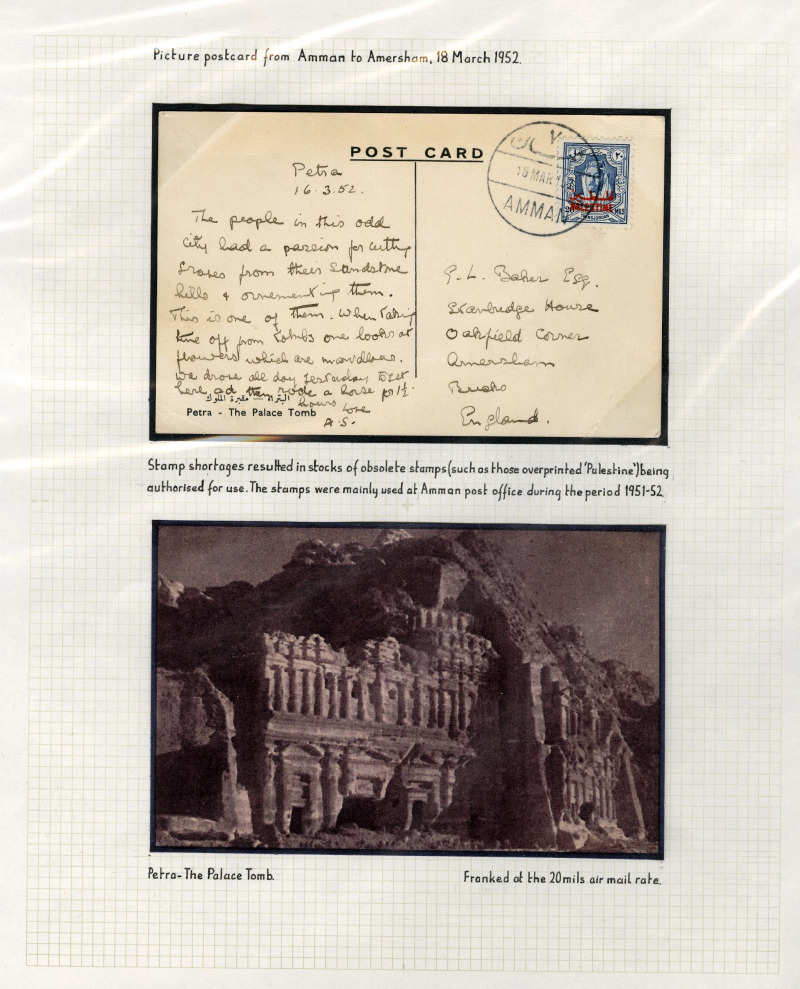 Picture postcard from Amman to Amersham, 18 March 1952.
POST CARD
Petra
16.3.52.
The people in this odd
city had a passion for cutting
graves from their sandstone
hills & ornamenting them.
This is one of them. When taking
time off from tombs one looks at
flowers which are marvellous.
We drove all day yesterday to get
here and then rode a horse for 1½
hours love
A.S.
البتراء – مقبرة الملوك
Petra - The Palace Tomb
18 MAR
AMMAN
٢٠
PALESTINE
MILS
TRANSJORDAN
G. L. Baker Esq.
Stanbridge House
Oakfield Corner
Amersham
Bucks
England.
Stamp shortages resulted in stocks of obsolete stamps (such as those overprinted 'Palestine') being
authorised for use. The stamps were mainly used at Amman post office during the period 1951-52.
Petra - The Palace Tomb.
Franked at the 20mils air mail rate.